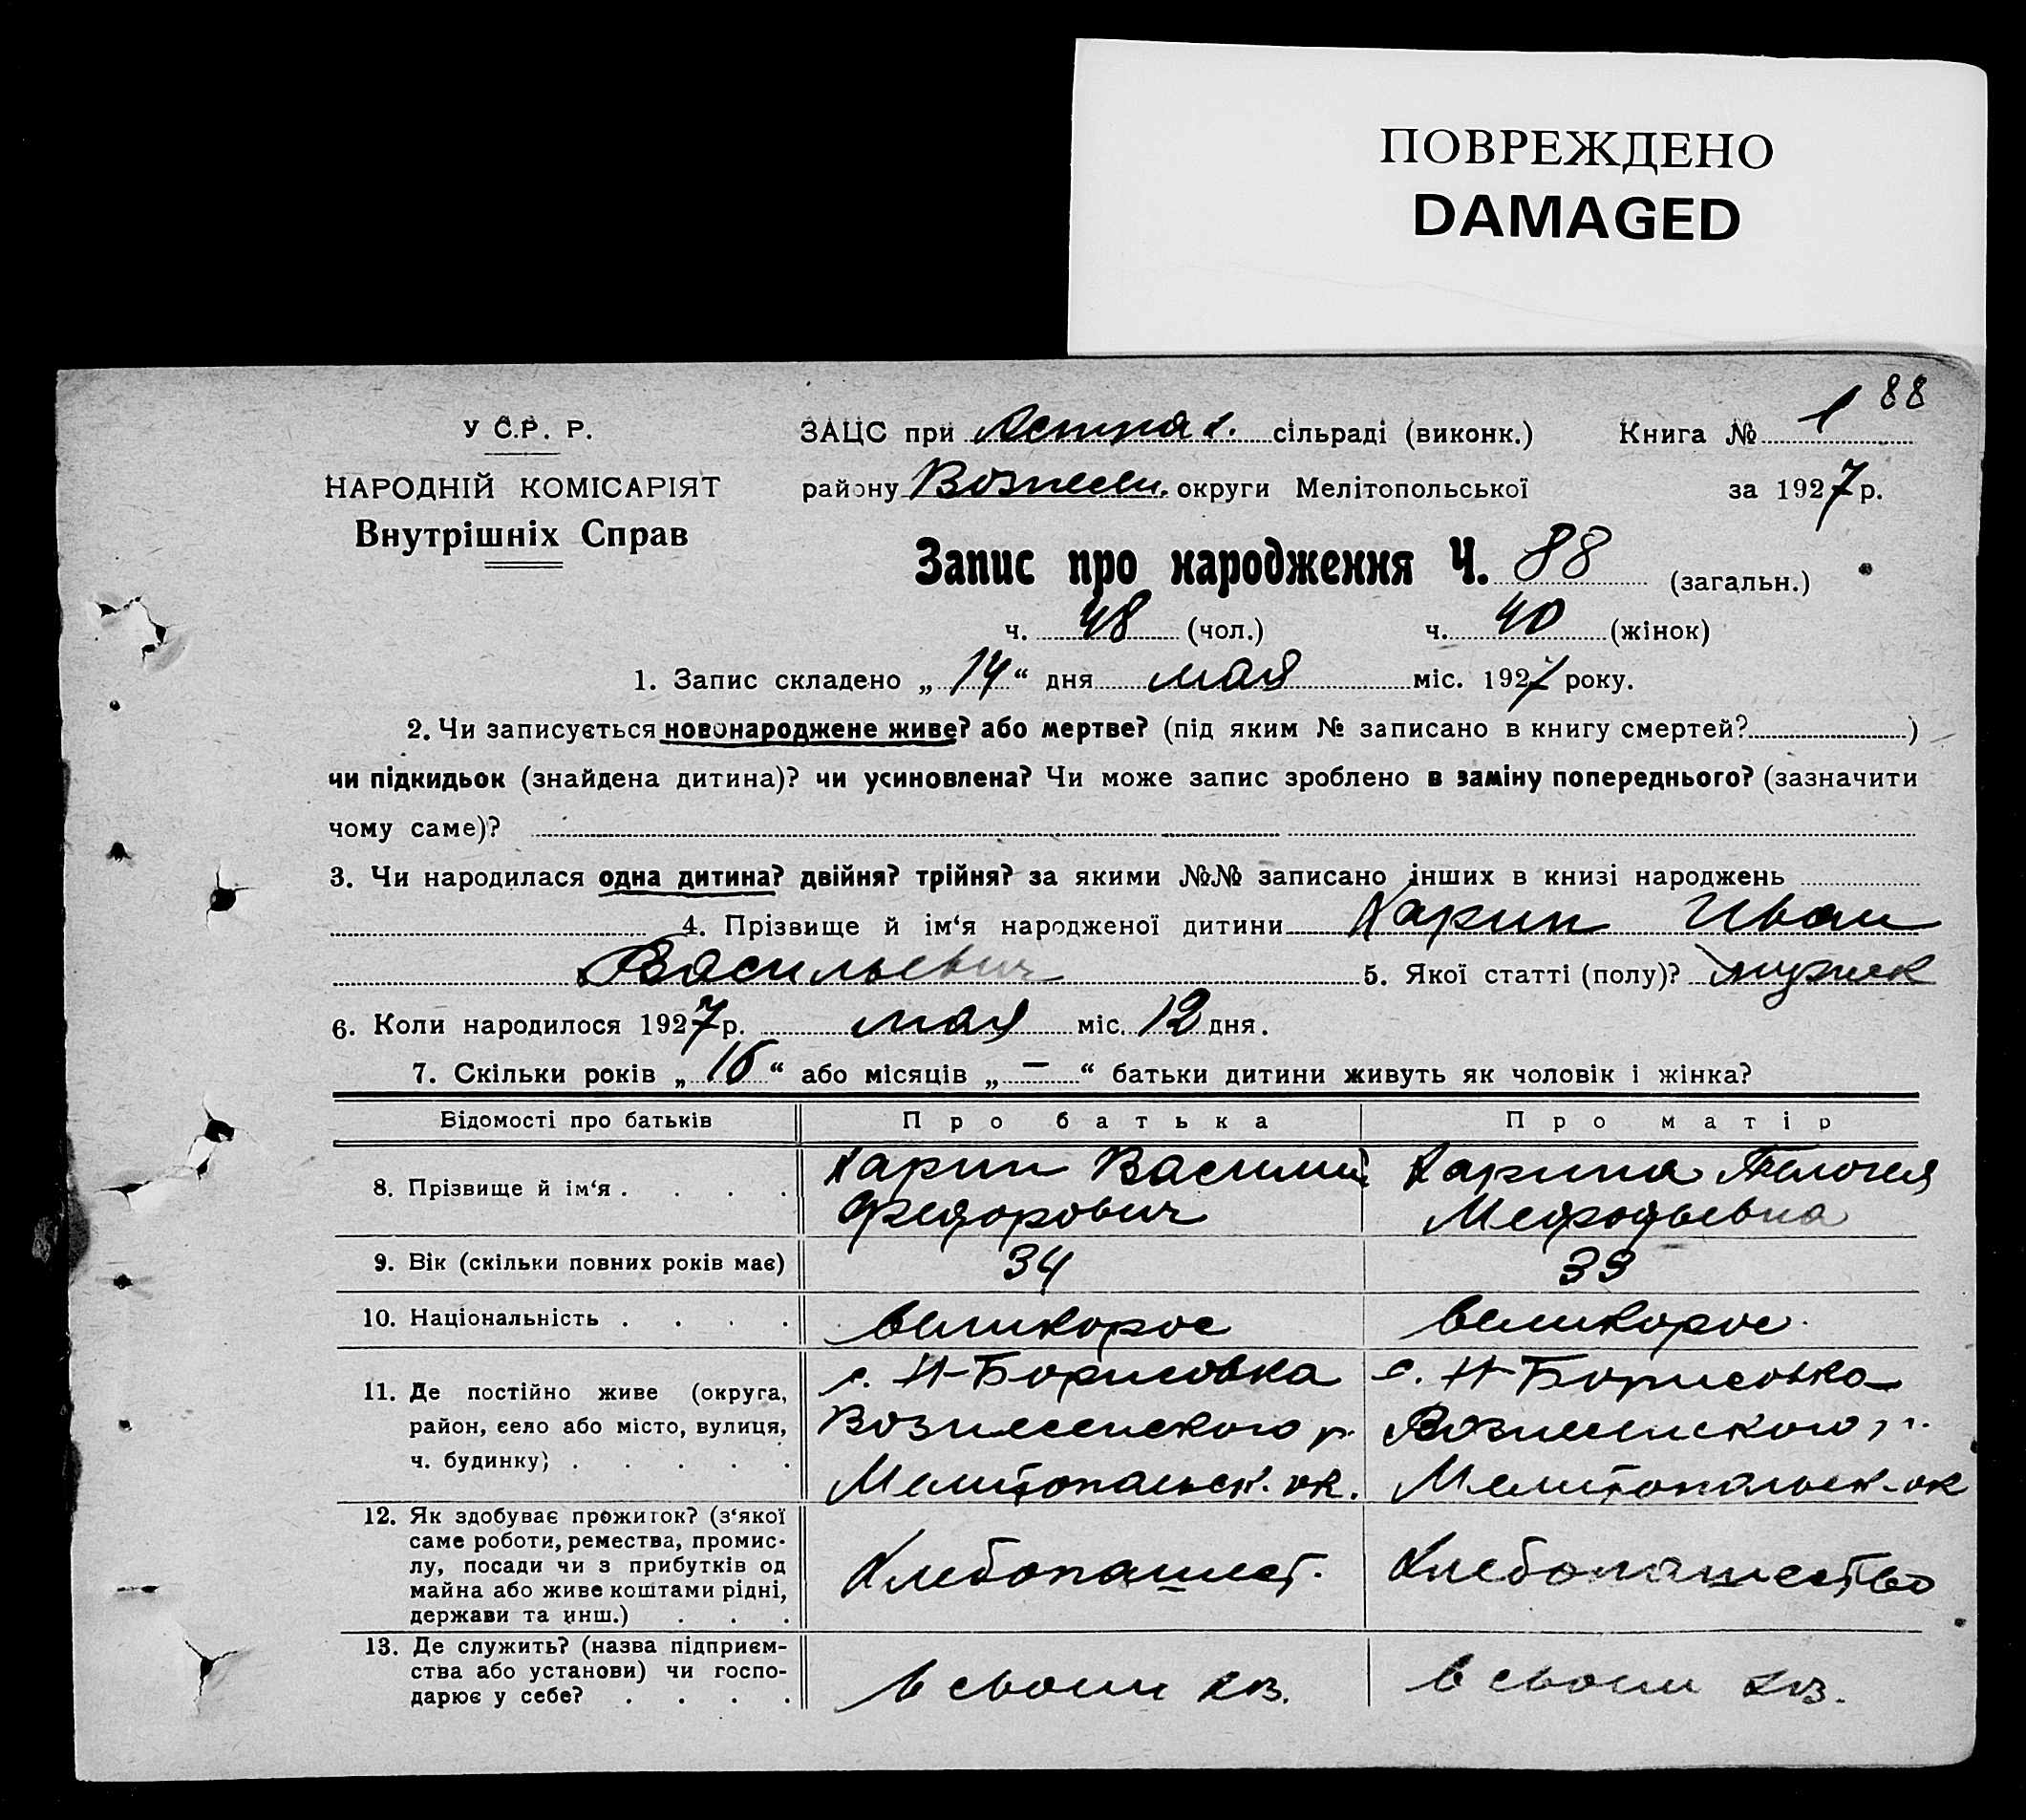 ПОВРЕЖДЕНО
DAMAGED
88
У С.Р. Р.
ЗАЦС при сільраді (виконк.) Книга № 1
НАРОДНІЙ КОМІСАРІЯТ
району Вознесен. округи Мелітопольської за 1927 р.
Внутрішніх Справ
Запис про народження Ч. 88 (загальн.)
ч. 48 (чол.) ч. 40 (жінок)
1. Запис складено „14“ дня мая міс. 1927 року.
2. Чи записується новонароджене живе? або мертве? (під яким № записано в книгу смертей? )
чи підкидьок (знайдена дитина)? чи усиновлена? Чи може запис зроблено в заміну попереднього? (зазначити
чому саме)?
3. Чи народилася одна дитина? двійня? трійня? за якими №№ записано інших в книзі народжень
4. Прізвище й ім‘я народженої дитини Карин Иван
Васильевич 5. Якої статті (полу)? мужск
6. Коли народилося 1927 р. мая міс. 12 дня.
7. Скільки років „16“ або місяців „—“ батьки дитини живуть як чоловік і жінка?
Відомості про батьків Про батька Про матір
8. Прізвище й ім‘я . . . . Карин Василий Федорович Карина Мефодьевна
9. Вік (скільки повних років має) 34 33
10. Національність . . . . великорос великорос.
11. Де постійно живе (округа, район, село або місто, вулиця, ч. будинку) . . . . . с. Н-Борисовка Вознесенского р. Мелитопольск. ок. с. Н-Борисовка Вознесенского р. Мелитопольск. ок
12. Як здобуває прожиток? (з‘якої саме роботи, ремества, промислу, посади чи з прибутків од майна або живе коштами рідні, держави та инш.) . . . Хлебопашест. Хлебопашество
13. Де служить? (назва підприємства або установи) чи господарює у себе? . . . . в своем хоз. в своем хоз.